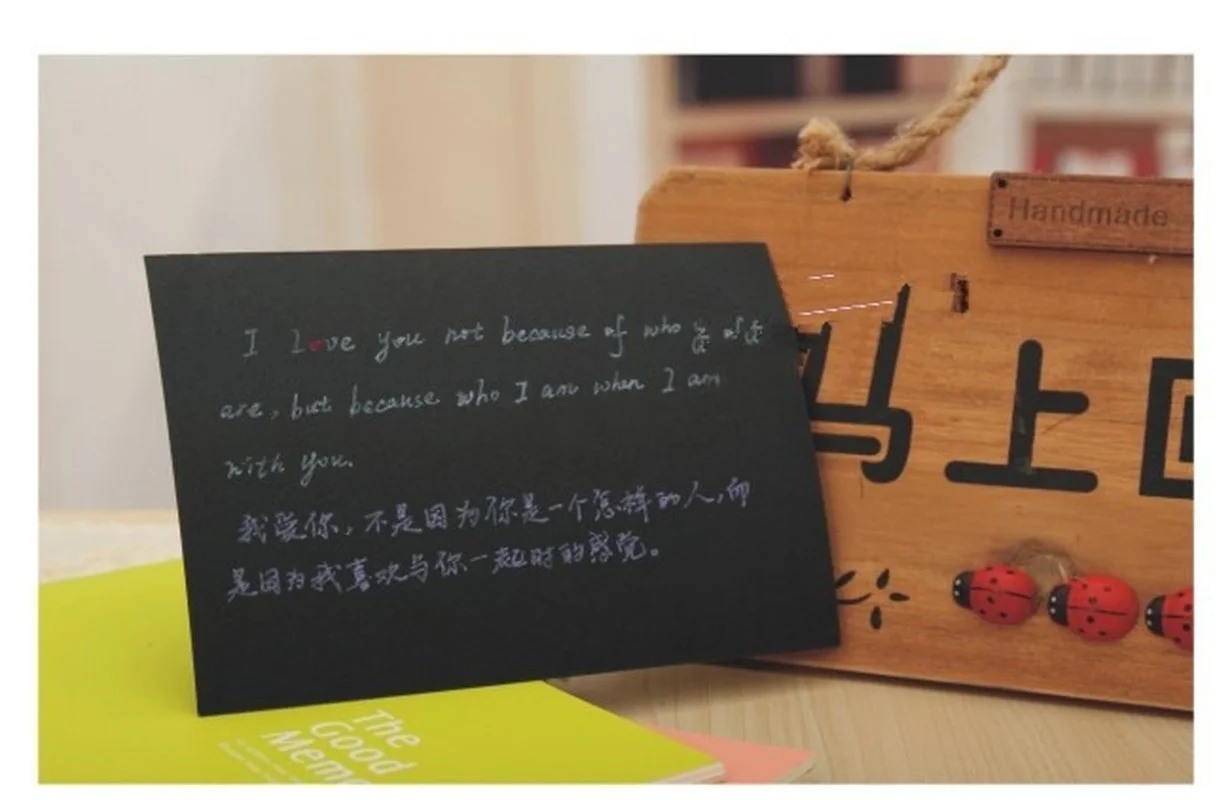 I Love you not because of who
are, but because who I am when I am
with you.
我爱你，不是因为你是一个怎样的人，而
是因为我喜欢与你一起时的感觉。
Handmade
马上
The
Good